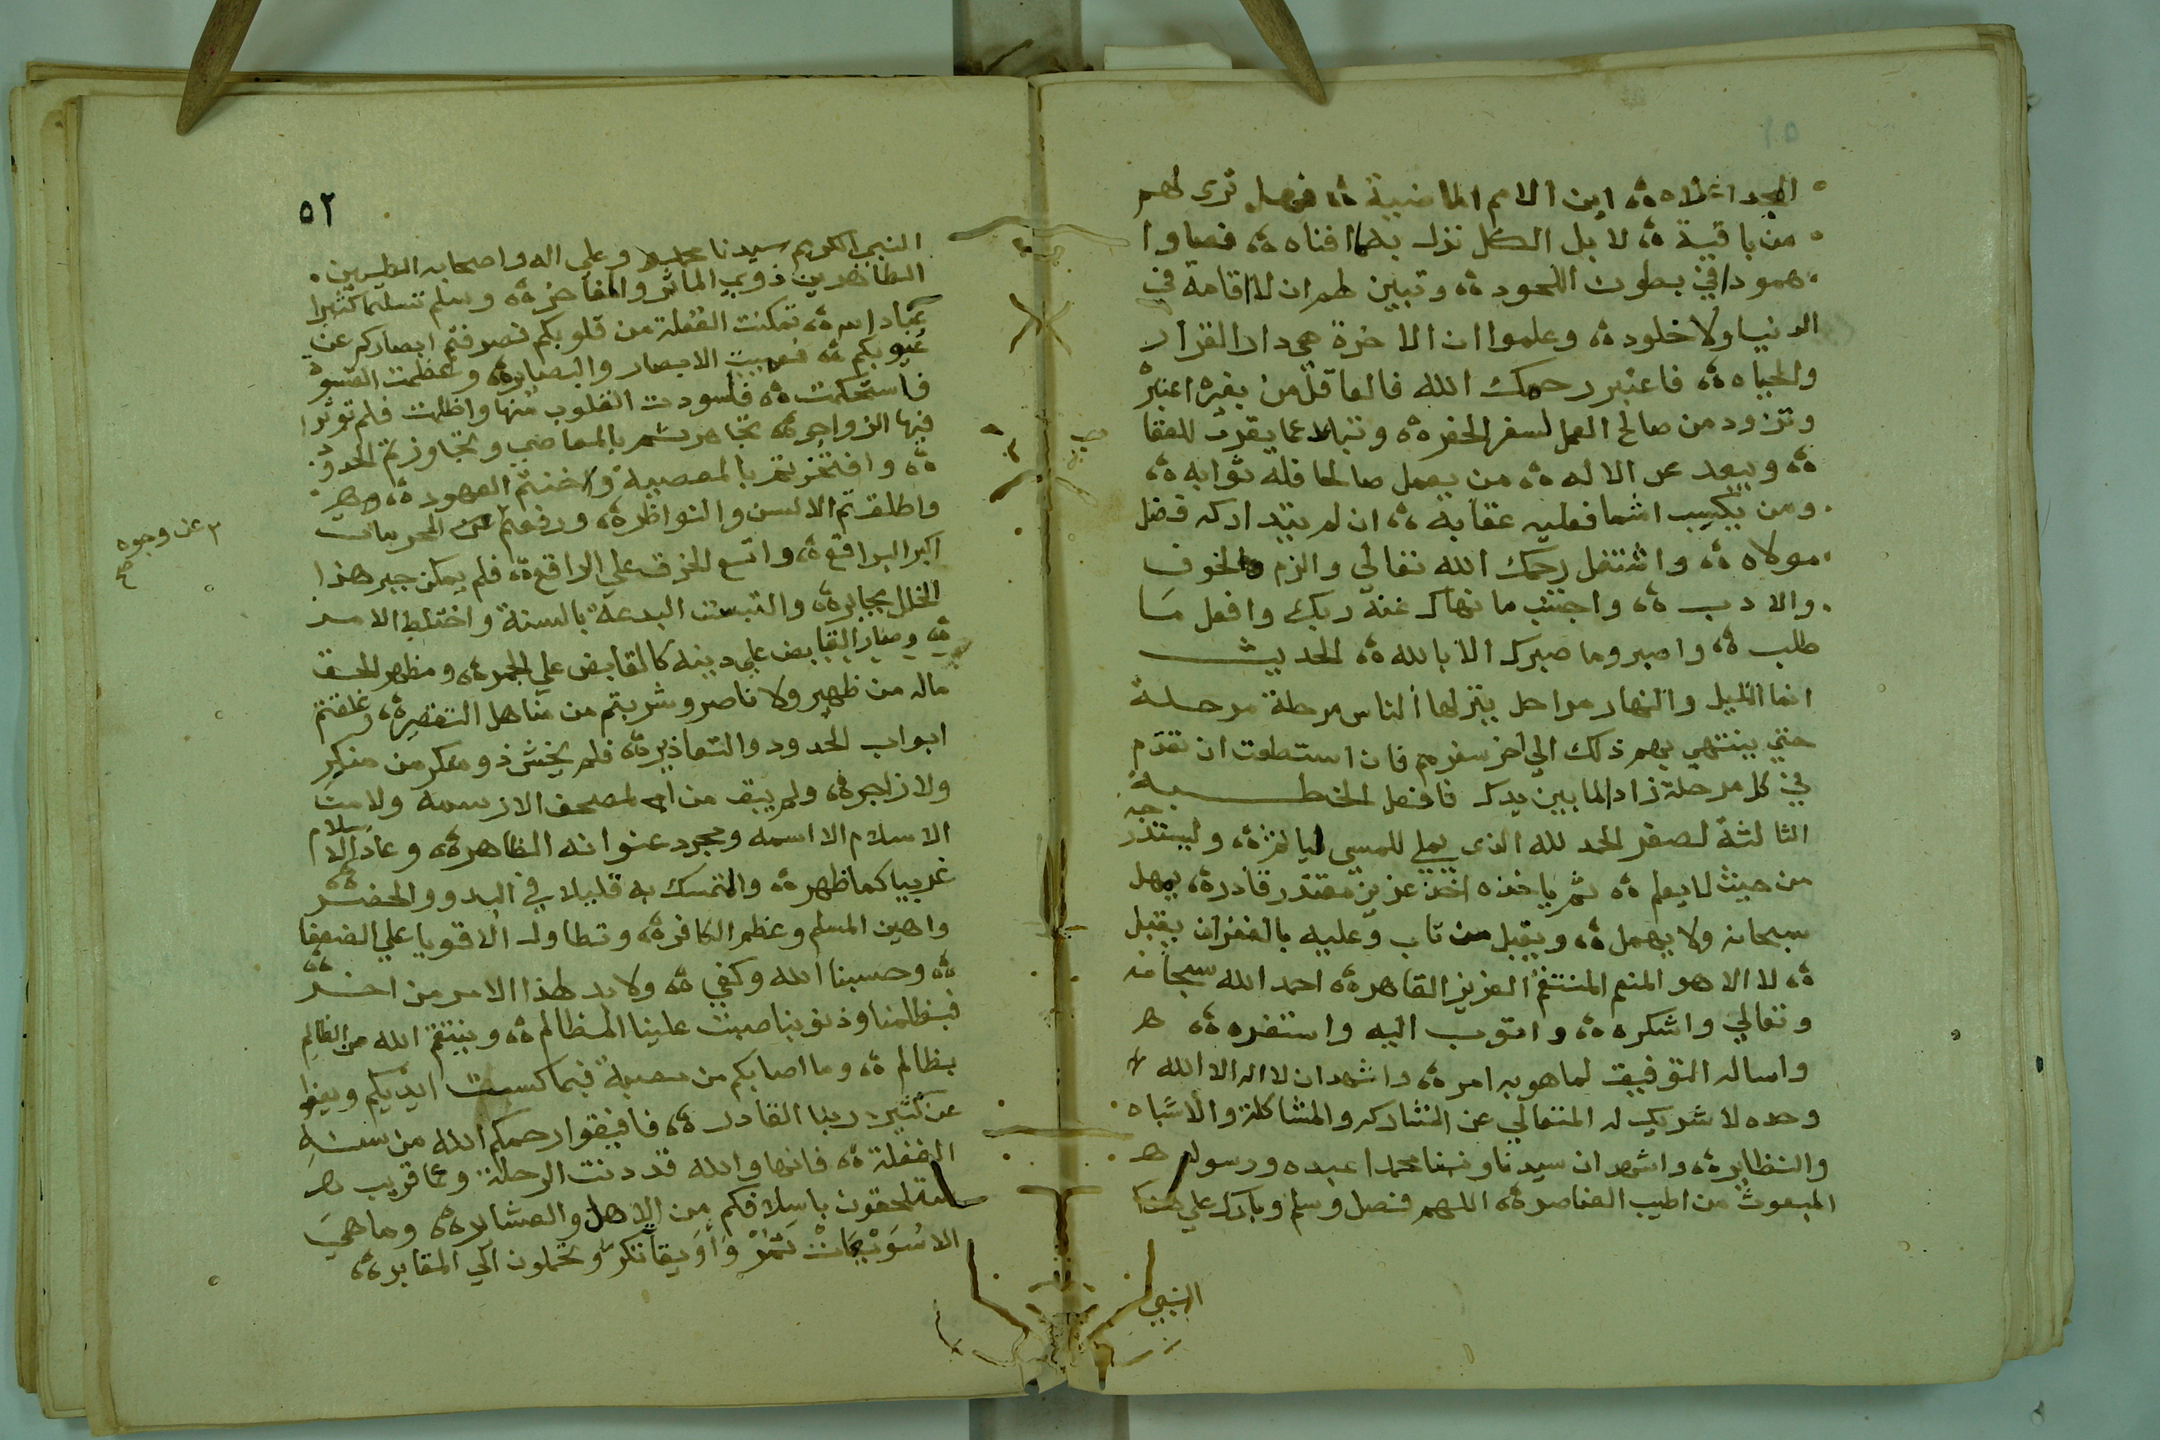 المجد اعلاه ۀ اين الامم الماضية ۀ فهل ترى لهم
من باقية ۀ لا بل الكل نزل بهما افناه ۀ فصاروا
همودا في بطون اللحود ۀ وتبين لهم ان لا اقامة في
الدنيا ولا خلود ۀ وعلموا ان الاخرة هي دار القرار
والحياه ۀ فاعتبر رحمك الله فالعاقل من بغيره اعتبر
وتزود من صالح العمل لسفر الحفره ۀ عما يقرب للعقا
ۀ ويبعد عن الاله ۀ من يعمل صالحا فله ثوابه ۀ
ومن يكسب اثما فعليه عقابه ۀ ان لم يتداركه فضل
مولاه ۀ واشتغل رحمك الله تعالي والزم الخوف
والادب ۀ واجتنب ما نهاك عنه ربك وافعل مـا
طلب ۀ واصبر وما صبرك الا بالله ۀ الحديث
انما الليل والنهار مراحل ينزلها الناس مرحلة مرحلة
حتي ينتهي بهم ذلك الي اخر سفرهم فان استطعت ان تقدم
في كل مرحلة زادا لما بين يدك فافعل الخطبة
الثالثة لصفر الحمد لله الذي يملي للمسي ۀ وليستدرجه
من حيث لا يعلم ۀ ثم ياخذه اخذ عزيز مقتدر قادر ۀ يمهل
سبحانه ولا يهمل ۀ ويقبل من تاب وعليه بالغفران يقبل
ۀ لا اله الا هو المنعم المنتقم العزيز القاهر ۀ احمد الله سبحانه
وتعالي واشكره ۀ واتوب اليه واستغفره ۀ
واساله التوفيق لما هو به امر ۀ واشهد ان لا اله الا الله
وحده لا شريك له المتعالي عن المشاركه والمشاكلة والاشباه
والنظاير ۀ واشهد ان سيدنا ونبينا محمدا عبده ورسوله
المبعوث من اطيب العناصر ۀ اللهم فصل وسلم وبارك علي هذا
النبي
٥٢
النبي الكريم سيدنا محمد وعلي اله واصحابه الطيبين
الطاهرين ذوي الماثر والمفاخر ۀ وسلم تسليما كثيرا
عباد الله ۀ تمكنت الغفلة من قلوبكم فصرفتم ابصاركم عن
عيوبكم ۀ فعميت الابصار والبصاير ۀ وعظمت القسوة
فاستحكمت ۀ فاسودت القلوب منها واظلمت فلم توثر
فيها الزواجر ۀ تجاهرتم بالمعاصي وتجاوزتم الحدود
ۀ وافتخرتم بالمعصية وخنتم العهود ۀ
واطلقتم الالسن والنواظر ۀ ورفعتم عن وجوه المحرمات
اكبر البراقع ۀ واتسع الخرق علي الراقع ۀ فلم يمكن جبر هذا
الخلل بجابر ۀ والتبست البدعة بالسنة واختلط الامر
ۀ وصار القابض علي دينه كالقابض علي الجمر ۀ ومظهر الحق
ماله من ظهير ولا ناصر وشربتم من مناهل التقصير ۀ وغلقتم
ابواب الحدود والتعاذير ۀ فلم يخش ذو منكر من منكر
ولا زاجر ۀ ولم يبق من المصحف الا رسمه ولا من
الاسلام الا اسمه ومجرد عنوانه الظاهر ۀ وعاد الاسلام
غريبا كما ظهر ۀ والمتمسك به قليلا في البدو والحضر ۀ
واهين المسلم وعظم الكافر ۀ وتطاول الاقويا علي الضعفا
ۀ وحسبنا الله وكفي ۀ ولا بد لهذا الامر من اخر ۀ
فبظلمنا وذنوبنا صبت علينا المظالم ۀ وينتقم الله من الظالم
بظالم ۀ وما اصابكم من مصيبة فبما كسبت ايديكم ويعفوا
عن كثير ربنا القادر ۀ فافيقوا رحمكم الله من سنة
الغفلة ۀ فانها والله قد دنت الرحلة وعما قريب
ستلحقون باسلافكم من الاهل والعشاير ۀ وما هي
الا سويعات تمر واويقات تكر وتحملون الي المقابر ۀ
عن وجوه
صح